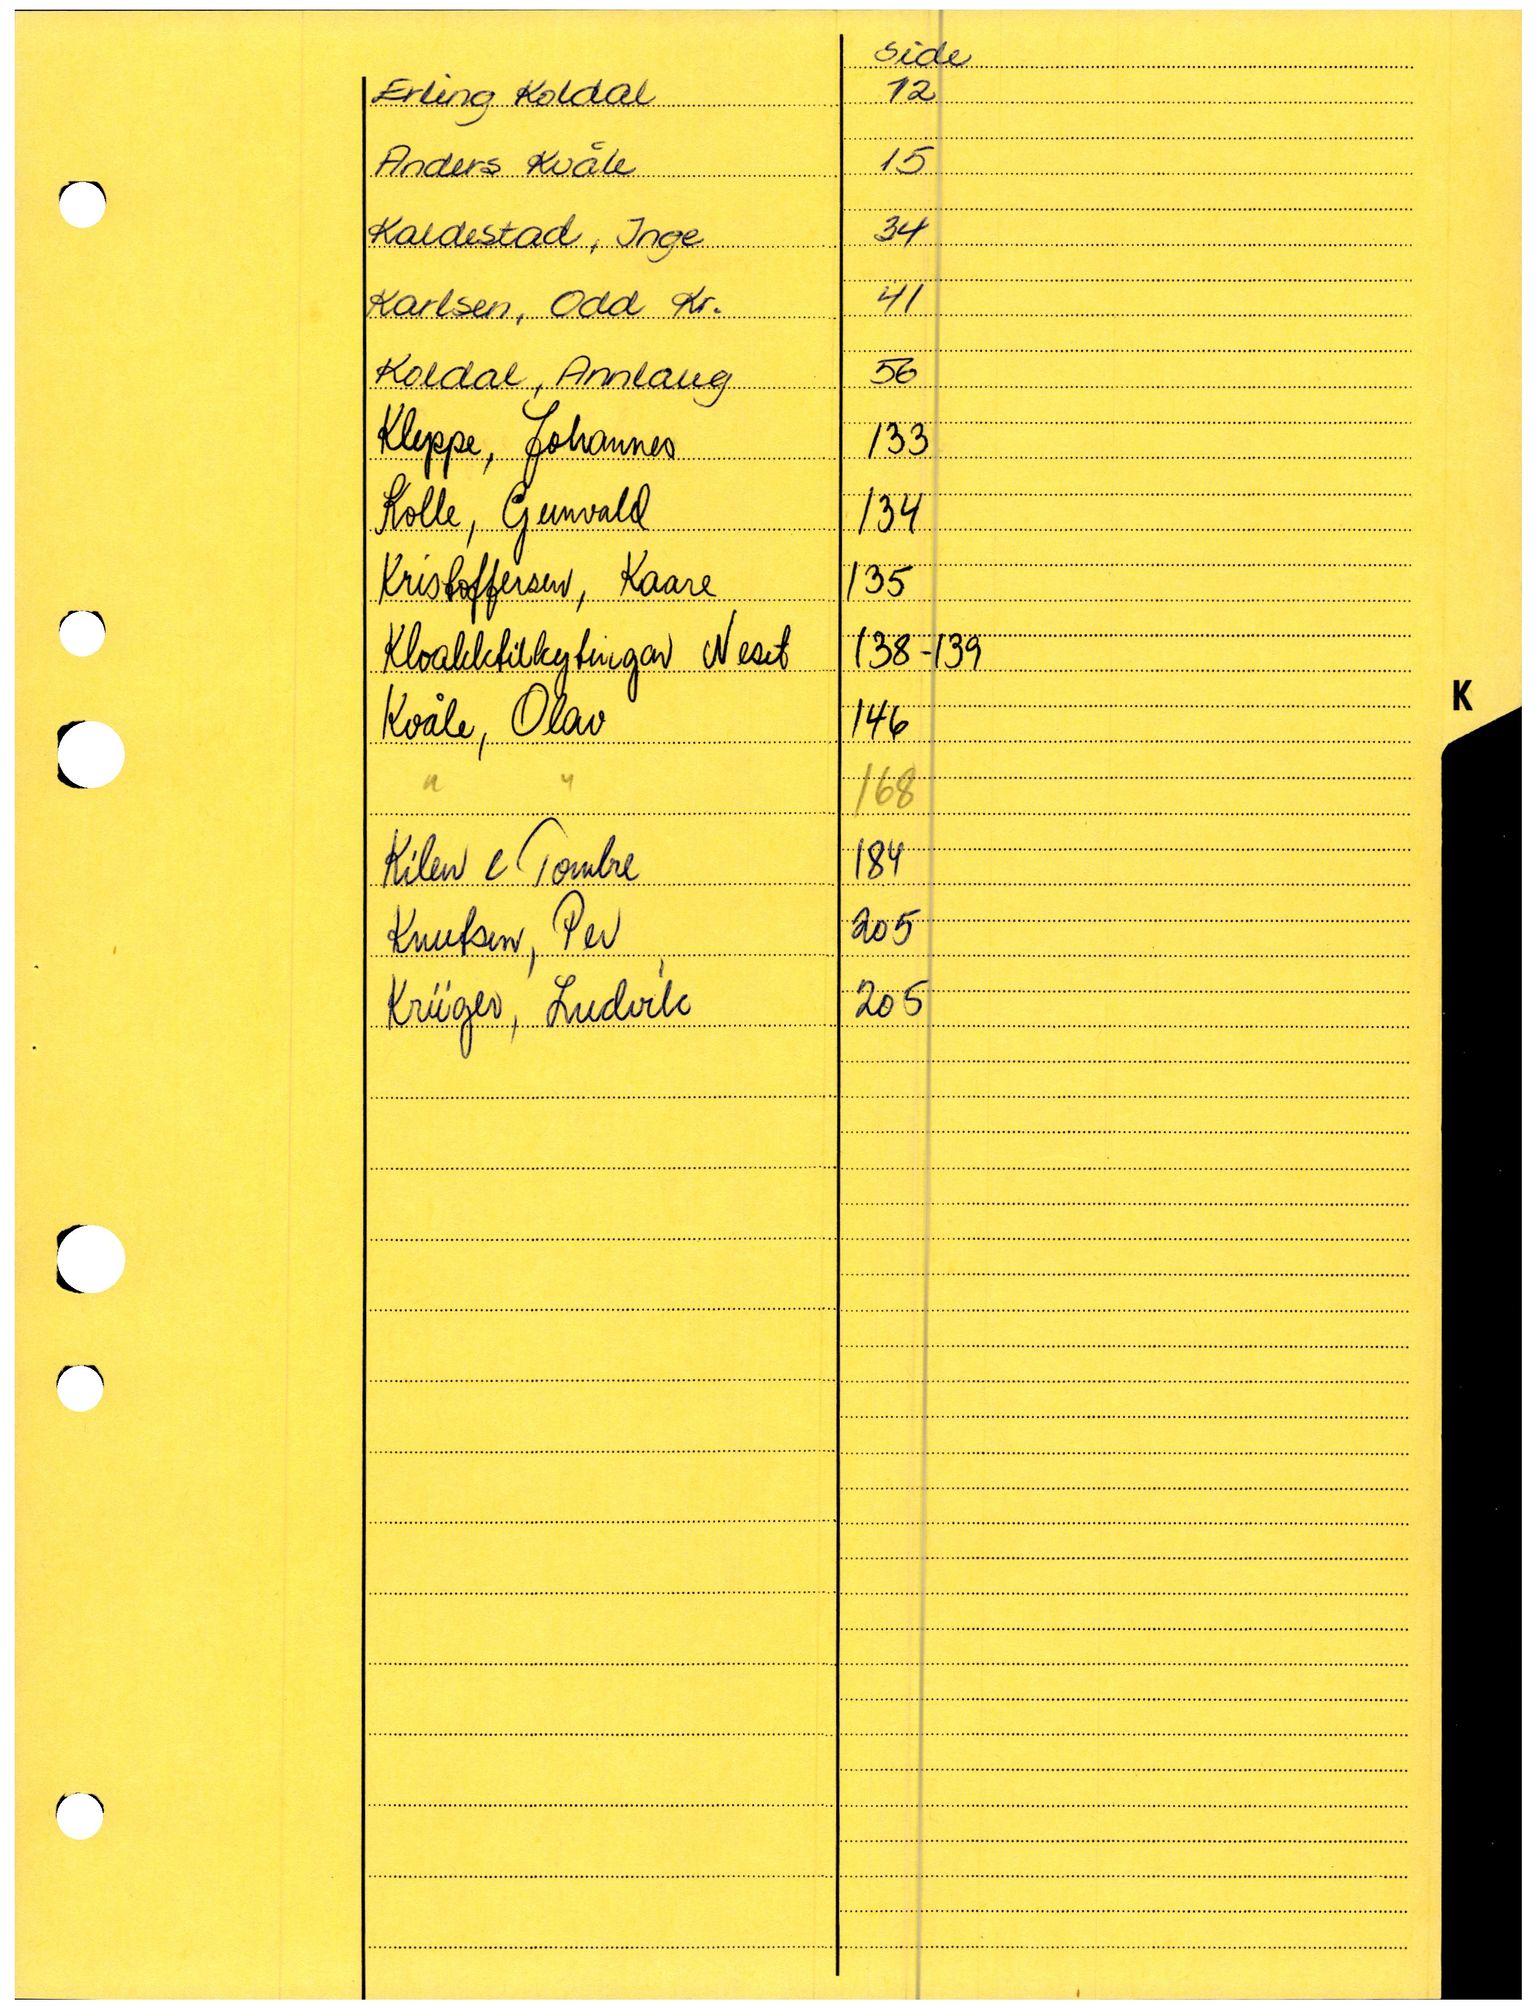 side
Erling Koldal 12
Anders Kvåle 15
Kaldestad, Inge 34
Karlsen, Odd Kr. 41
Koldal, Annlaug 56
Kleppe, Johannes 133
Kolle, Gunvald 134
Kristoffersen, Kaare 135
Kloakktilkytingar Neset 138-139
Kvåle, Olav 146
" " 168
Kilen & Tombre 184
Knutsen, Per 205
Krüger, Ludvik 205
K